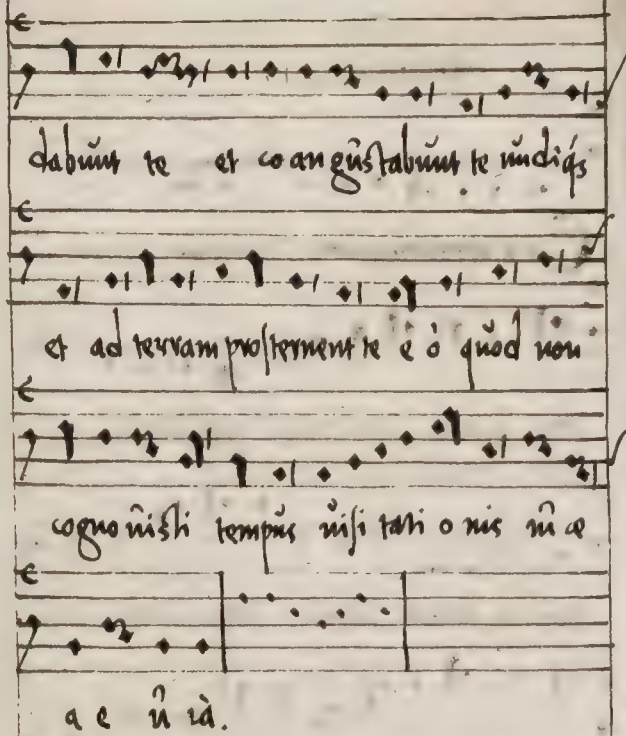 dabunt te et co angustabunt te undiqȝ
et ad terram prosternent te e ò quod non
cogno uisti tempus uisi tati o nis tu ae
a e u ia.